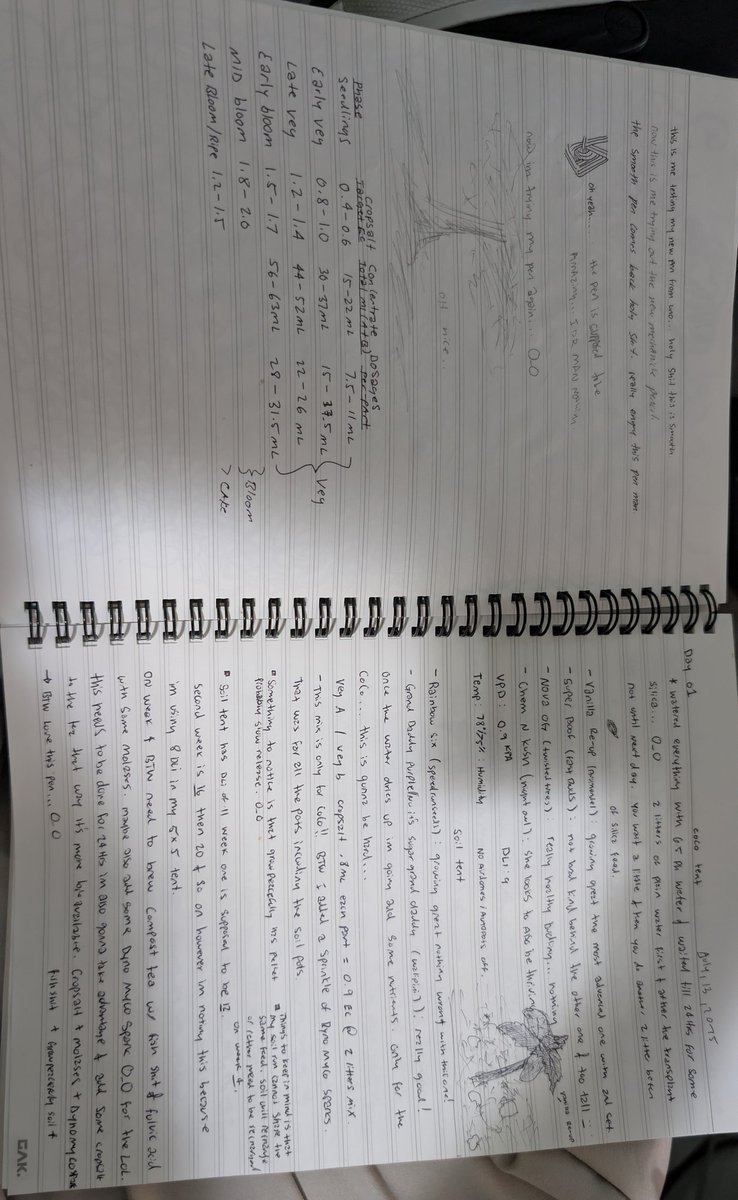 this is me testing my new pen from uno... holy shit this is smooth
now this is me trying out the new mechanical pencil
the smooth pen comes back holy shit. really enjoy this pen man.
oh yeah..... the pen is supposed to be
Amazing...
now im trying my pen again... O_O
oh nice..
Cropsalt Concentrate Dosages
Phase Target EC Total mL (A+B) per part
Seedlings 0.4-0.6 15-22 mL 7.5-11 mL
Early veg 0.8-1.0 30-37mL 15-
Late veg 1.2-1.4 44-52mL 22-26 mL
Veg
Early bloom 1.5-1.7 56-63mL 28-31.5mL
MID bloom 1.8-2.0
Bloom
Late Bloom/Ripe 1.2-1.5
> CAKE
July, 13, 2025
Day 01 coco tent
* watered everything with 6.5 Ph water & waited till 24 Hrs for some
silica... O_O 2 liters of plain water first & after the transplant
not until next day. You wait a little & then you do another 2 liter batch
of silica feed.
- Vanilla : growing great the most advanced one with 2nd set.
- Super Boof : not bad kind behind the other one & too tall -
- Nova OG (twisted trees) : really healthy budling... nothing
- Chem N Kush : she looks to also be thriving
VPD : 0.9 KPA DLI : 9
Temp : 78°/75% : Humidity No Airdomes / Autopots off.
Soil tent
- Rainbow six (speedrun seeds) : growing great nothing wrong with this one!
- Grand Daddy Purple : really good!
Once the water dries up im going add some nutrients. Only for the
Coco... this is gunna be hard...
Veg A / veg b cropsalt. 3mL each part = 0.9 EC @ 2 liters mix.
- This mix is only for Coco!! BTW I added a sprinkle of Dyno Myco sparks.
That was for all the pots including the soil pots.
Something to notice is that growpercefully its pellet
Probably slow release. O_O
Things to keep in mind is that
my soil run cannot share the
same feed. soil will reamend
or rather need to be reamended
on week 4.
Soil tent has DLI of 11 week one is supposed to be 13
second week is 16 then 20 & so on however im noting this because
im using 8 DLI in my 5x5 tent.
On week 4 BTW need to brew compost tea w/ fish shit & fulvic acid
with some molases. maybe also add some Dyno Myco Spark O_O for the LOL.
this needs to be done for 24 Hrs im also gonna take advantage & add some cropsalt
to the tea that why it's more bio available. Cropsalt + molases + Dynomyco
→ BTW love this pen... O_O fish shit + Growpercefully soil +
GAK.